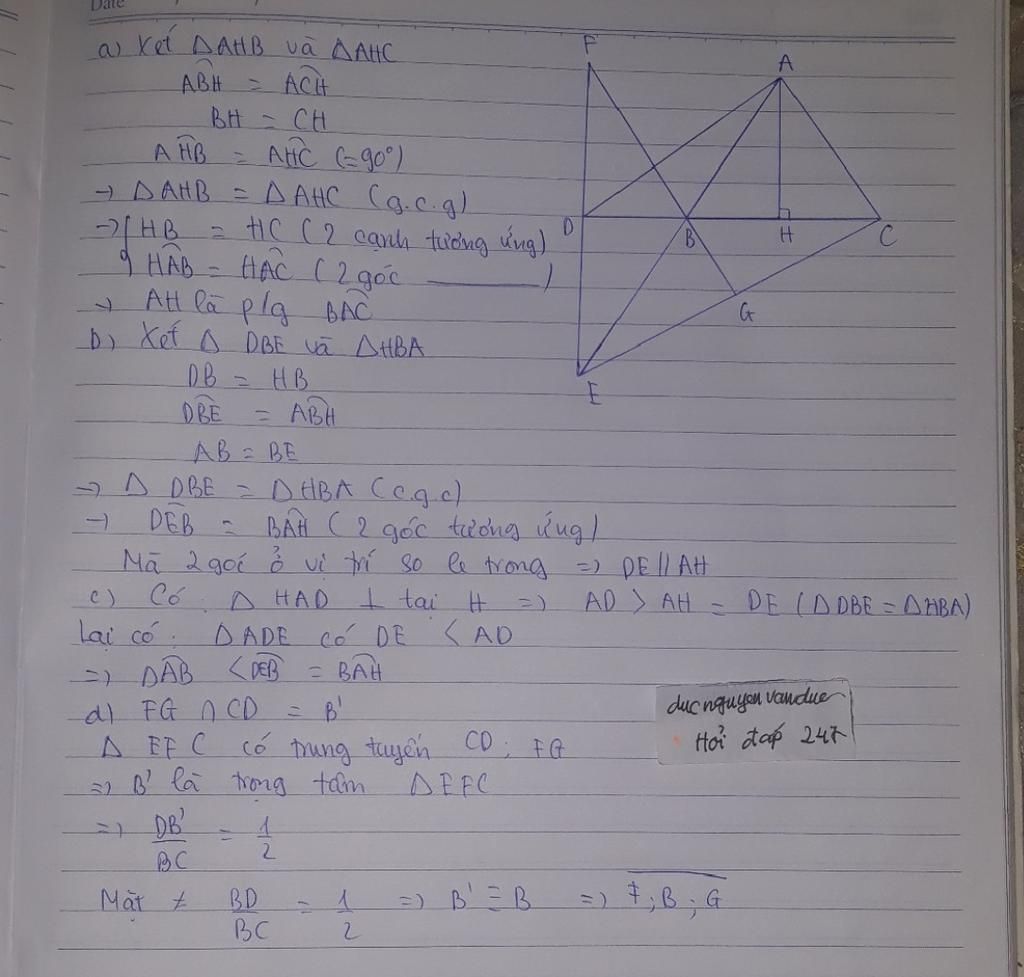 Date
a) Xét ΔAHB và ΔAHC
ABH^ = ACH^
BH = CH
AHB^ = AHC^ (=90°)
→ ΔAHB = ΔAHC (g.c.g)
→ { HB = HC (2 cạnh tương ứng)
HAB^ = HAC^ (2 góc ————)
→ AH là p/g BAC^
b) Xét Δ DBE và ΔHBA
DB = HB
DBE^ = ABH^
AB = BE
→ Δ DBE = ΔHBA (c.g.c)
→ DEB^ = BAH^ (2 góc tương ứng)
Mà 2 goí ở vị trí so le trong => DE // AH
c) Có: Δ HAD ⊥ tại H => AD > AH = DE (ΔDBE = ΔHBA)
Lại có: ΔADE có DE < AD
=> DAB^ < DEB^ = BAH^
d) FG ∩ CD = B'
Δ EFC có trung tuyến CD; FG
=> B' là trọng tâm ΔEFC
=> DB'/BC = 1/2
Mặt ≠ BD/BC = 1/2 => B' ≡ B => F; B; G
F
A
D
B
H
C
G
E
ducnguyenvanduc
Hỏi đáp 247